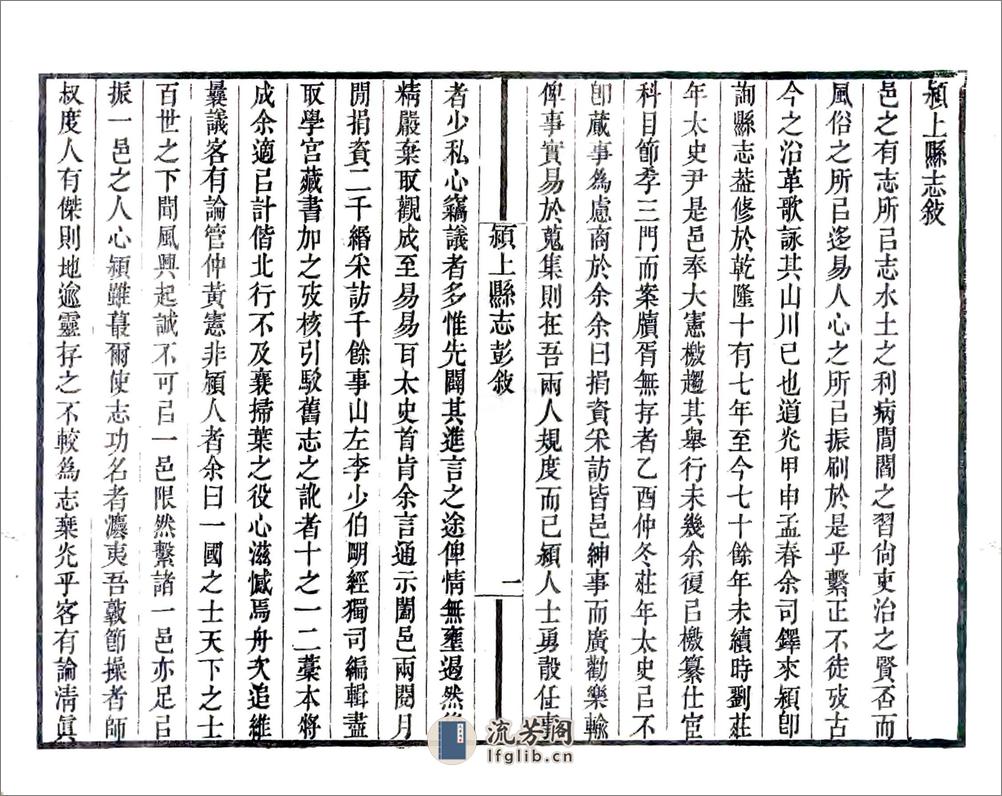 潁上縣志敘
邑之有志所㠯志水土之利病閭閻之習尙吏治之賢否而
風俗之所㠯迻易人心之所㠯振刷於是乎繫正不徒攷古
今之沿革歌詠其山川已也道光甲申孟春余司鐸來潁卽
詢縣志葢修於乾隆十有七年至今七十餘年未續時劉莊
年太史尹是邑奉大憲檄趨其舉行未幾余復㠯檄纂仕宦
科目節孝三門而案牘胥無存者乙酉仲冬莊年太史㠯不
卽蕆事爲慮商於余余曰捐資采訪皆邑紳事而廣勸樂輸
俾事實易於蒐集則在吾兩人規度而已潁人士勇㲉任事
潁上縣志彭敘
一
者少私心竊議者多惟先闢其進言之途俾情無壅遏然後
精嚴棄取觀成至易易耳太史首肯余言通示闔邑兩閱月
閒捐資二千緡采訪千餘事山左李少伯明經獨司編輯盡
取學宮藏書加之攷核引駁舊志之訛者十之一二藁本將
成余適㠯計偕北行不及襄掃葉之役心滋憾焉舟次追維
曩議客有論管仲黃憲非潁人者余曰一國之士天下之士
百世之下聞風興起誠不可㠯一邑限然繫諸一邑亦足㠯
振一邑之人心潁雖蕞爾使志功名者瀼夷吾敦節操者師
叔度人有傑則地逾靈存之不較爲志藁光乎客有論淸眞
流芳阁
lfglib.cn